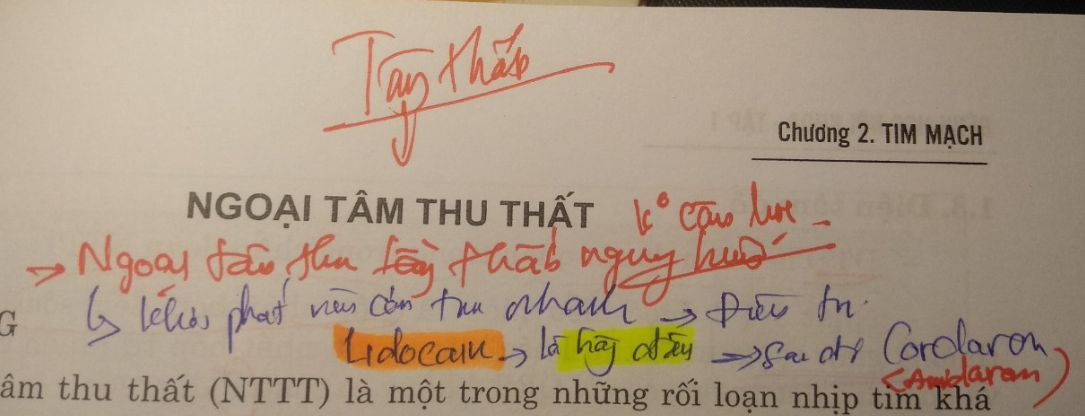 Tầng thất
Chương 2. TIM MẠCH
NGOẠI TÂM THU THẤT
→ Ngoại tâm thu tầng thất nguy hiểm
G ↳ phát nhanh → Điều trị
Lidocain → là hàng đầu → sau đó Cordaron
(Amidaron)
âm thu thất (NTTT) là một trong những rối loạn nhịp tim khá